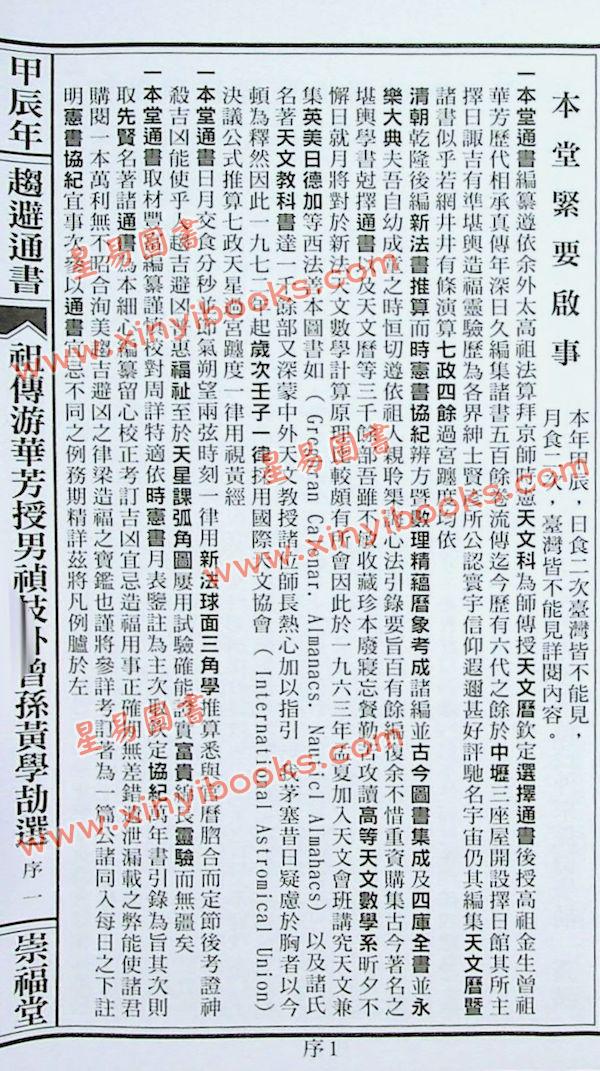 本堂緊要啟事
本年甲辰，日食二次臺灣皆不能見，
月食二次，臺灣皆不能見詳閱內容。
一本堂通書編纂遵依余外太高祖法算拜京師時憲天文科為師傳授天文曆欽定選擇通書後授高祖金生曾祖
華芳歷代相承真傳年深日久編集諸書五百餘卷流傳迄今歷有六代之餘於中壢三座屋開設擇日館其所主
擇日諏吉有準堪輿造福靈驗歷為各界紳士賢彥所公認寰宇信仰遐邇甚好評馳名宇宙仍其編集天文曆暨
諸書似乎若網井井有條演算七政四餘過宮躔度均依
清朝乾隆後編新法書推算而時憲書協紀辨方暨數理精蘊曆象考成諸編並古今圖書集成及四庫全書並永
樂大典夫吾自幼成童之時恒切遵依祖人親聆榘訓心法引錄要旨百有餘編復余不惜重資購集古今著名之
堪輿學書尅擇通書以及天文曆等三千餘部吾雖不潰收藏珍本廢寢忘餐勤苦攻讀高等天文數學系昕夕不
懈日就月將對於新法天文數學計算原理比較頗有所會因此於一九六三年孟夏加入天文會班講究天文兼
集英美日德加等西法善本圖書如（Gregoran Calenar. Almanacs. Nauticl Almahacs）以及諸氏
名著天文教科書達一千餘部又深蒙中外天文教授諸位師長熱心加以指引 我茅塞昔日疑慮於胸者以今
頓為釋然因此一九七二年起歲次壬子一律採用國際天文協會（International Astromical Union）
決議公式推算七政天星過宮躔度一律用視黃經
一本堂通書日月交食分秒並節氣朔望兩弦時刻一律用新法球面三角學推算悉與官曆脗合而定節後考證神
殺吉凶能使乎人趨吉避凶互惠福祉至於天星課弧角圖屢用試驗確能名實富貴綿長靈驗而無疆矣
一本堂通書取材豐富編纂謹慎校對周詳特適依時憲書月表鏨註為主次取欽定協紀萬年書引錄為旨其次則
取先賢名著諸通書為本細心編纂留心校正考訂吉凶宜忌造福用事正確的無差錯遂泄漏載之弊能使諸君
購閱一本萬利無不昭合洵美趨吉避凶之律梁造福之寶鑑也謹將參詳考訂著為一篇公諸同入每日之下註
明憲書協紀宜事次參以通書宜忌不同之例務期精詳茲將凡例臚於左
甲辰年
趨避通書
祖傳游華芳授男禎 外曾孫黃學劼選
序一
崇福堂
序1
星易圖書
www.xinyibooks.com
星易圖書
www.xinyibooks.com
星易圖書
www.xinyibooks.com
星易圖書
www.xinyibooks.com
星易圖書
www.xinyibooks.com